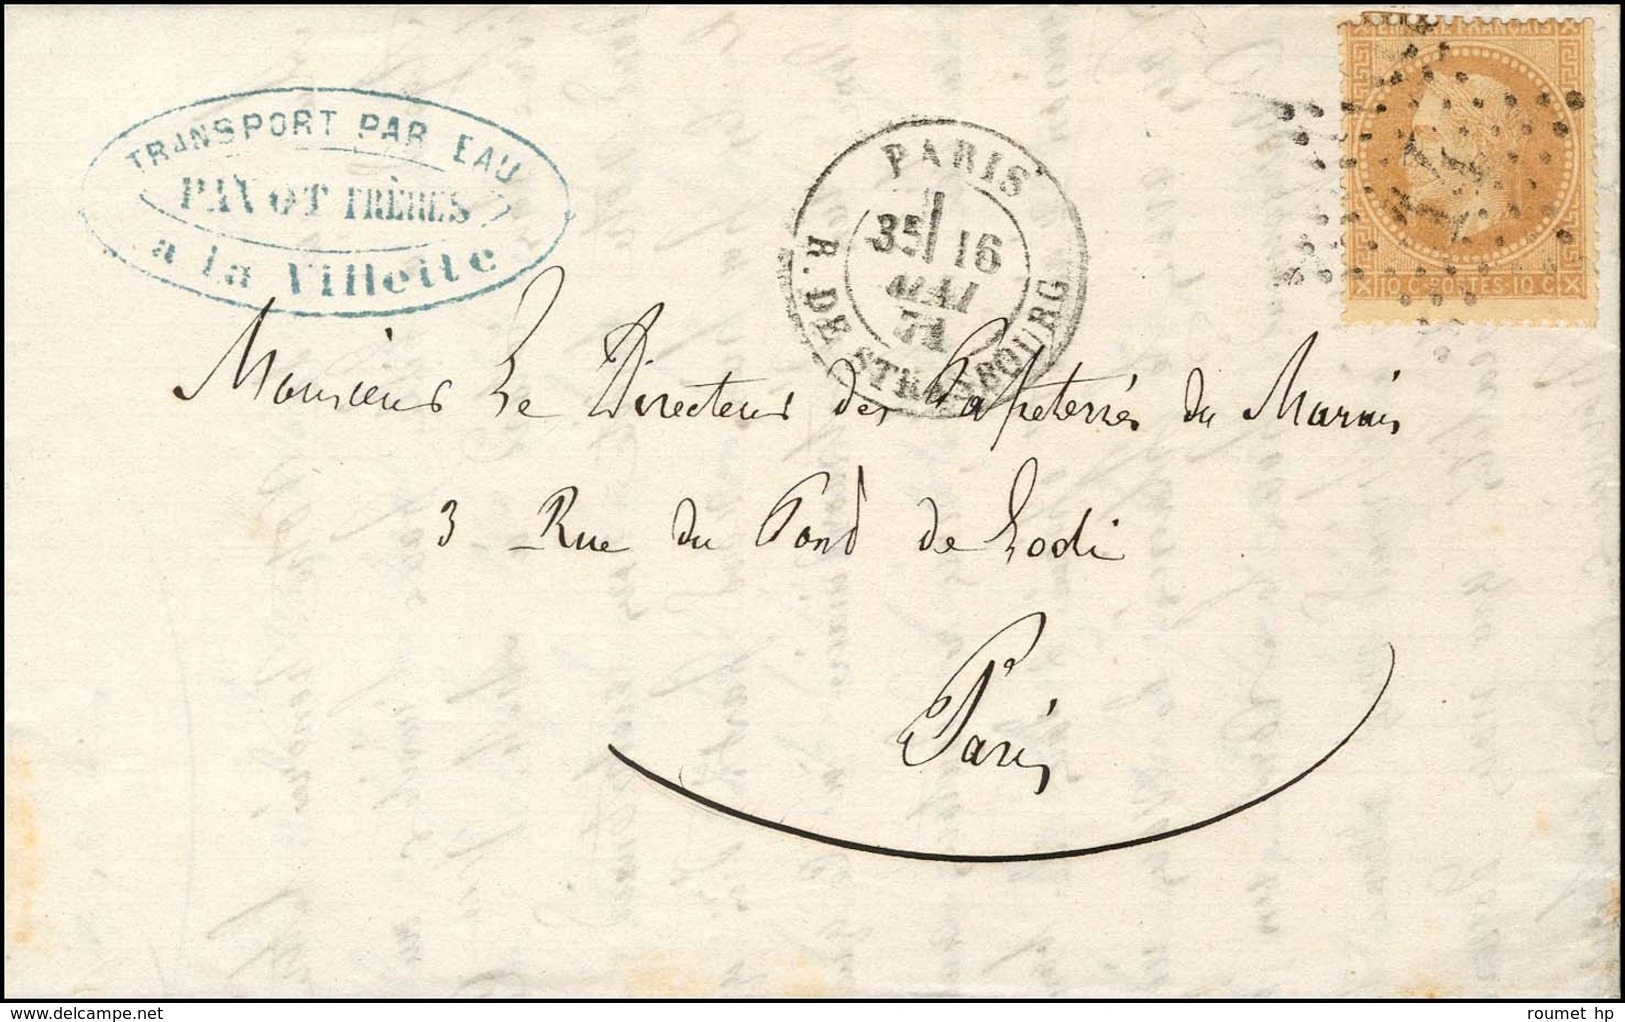 TRANSPORT PAR EAU
PAVOT FRÈRES
a la Villette
PARIS
35 16
MAI
71
R. DE STRASBOURG
EMPIRE FRANÇAIS
10 C. POSTES 10 C.
Monsieur Le Directeur des Papeteries du Marais
3 Rue du Pond de Lodi
Paris
roumet hp